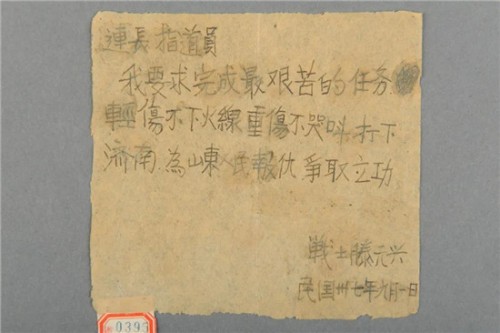 連長 指道員
我要求完成最艰苦的任务
輕傷不下火線重傷不哭叫打下
济南為山東人民報仇爭取立功
戰士滕元兴
民国卅七年九月一日
0395